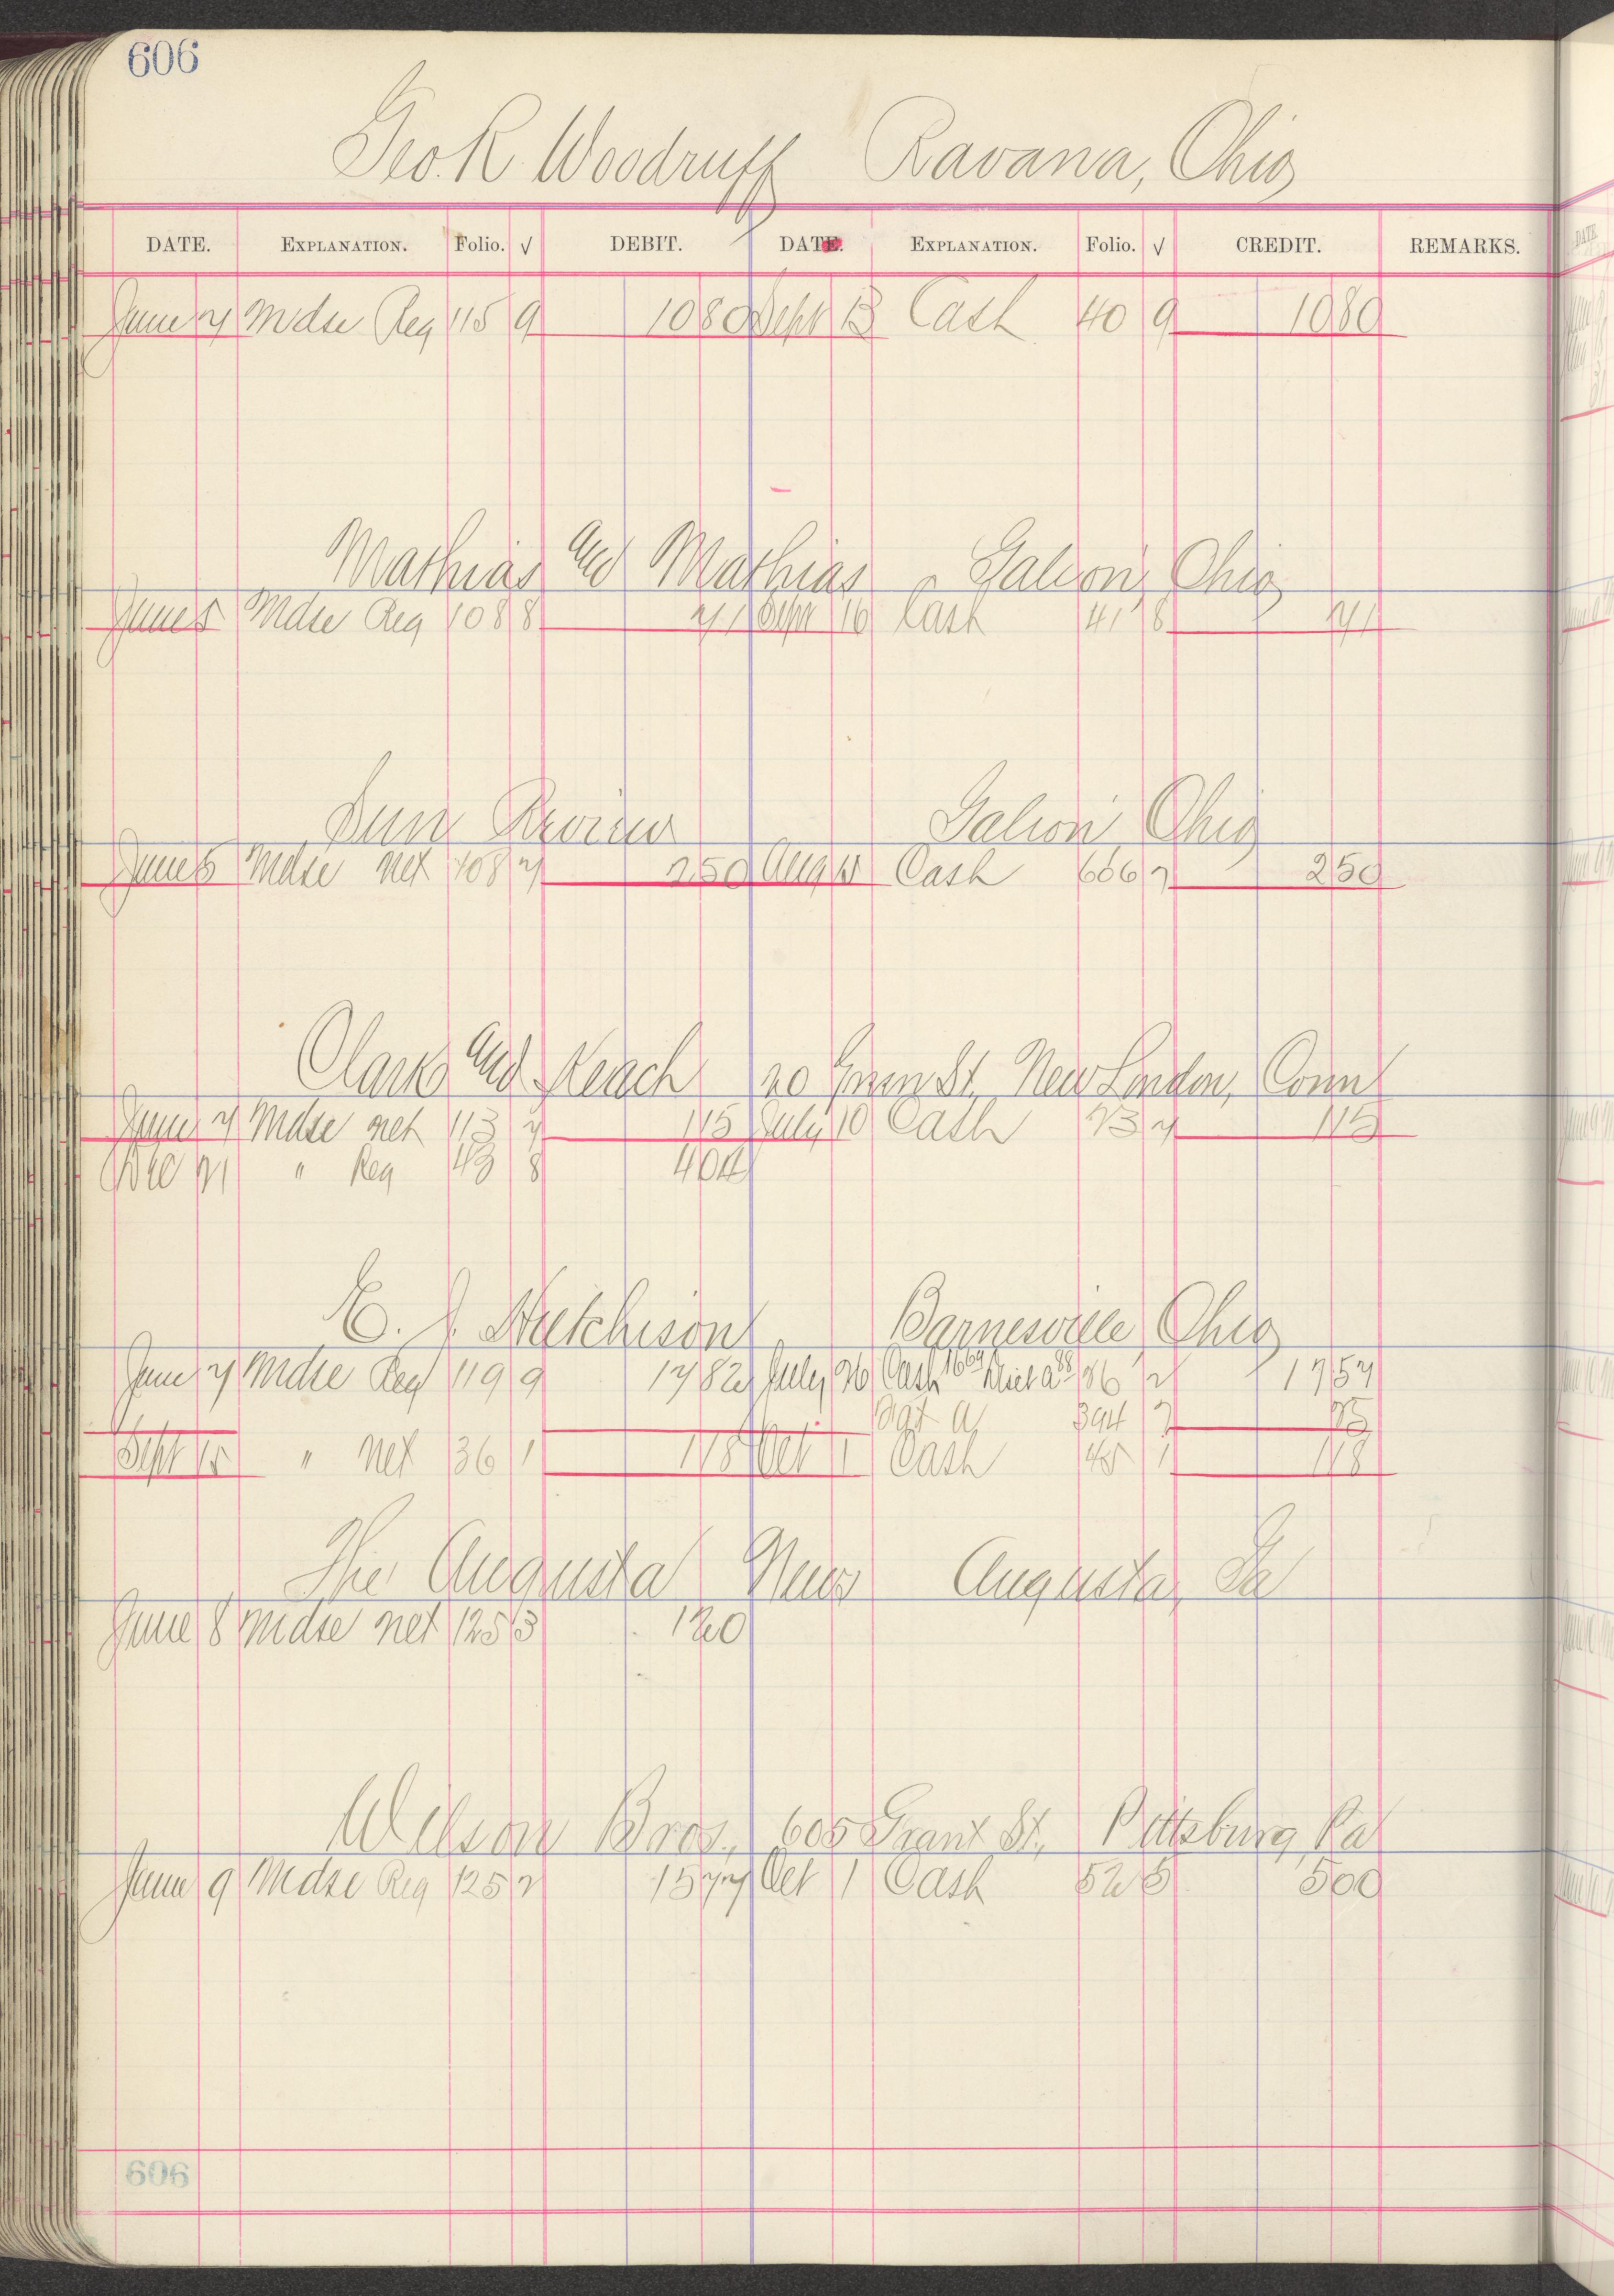 606
Geo. R Woodruff Ravana, Ohio
DATE. EXPLANATION. Folio. √ DEBIT. DATE. EXPLANATION. Folio. √ CREDIT. REMARKS.
June 7 Mdse Reg 115 9 1080 Sept 13 Cash 40 9 1080
Mathias and Mathias Galion, Ohio
June 5 Mdse Reg 108 8 Sept 16 Cash 41 8
Sun Review Galion Ohio
June 5 Mdse net 108 7 250 Aug Cash 666 7 250
Clark and Keach 20 Green St. New London, Conn
June 7 Mdse net 113 7 115 July 10 Cash 13 7 115
Dec 21 " Reg 43 8 404
E. J. Hutchison Barnesville Ohio
June 7 Mdse Reg 119 9 1782 July 26 Cash 1669 Disct a 88 86 2 1757
a 394 7 25
Sept 15 " net 36 1 118 Oct 1 Cash 48 1 118
The Augusta News Augusta, Ga
June 8 Mdse net 125 3 120
Wilson Bros., 605 Grant St., Pittsburg Pa
June 9 Mdse Reg 125 7 1577 Oct 1 Cash 52 5 500
606